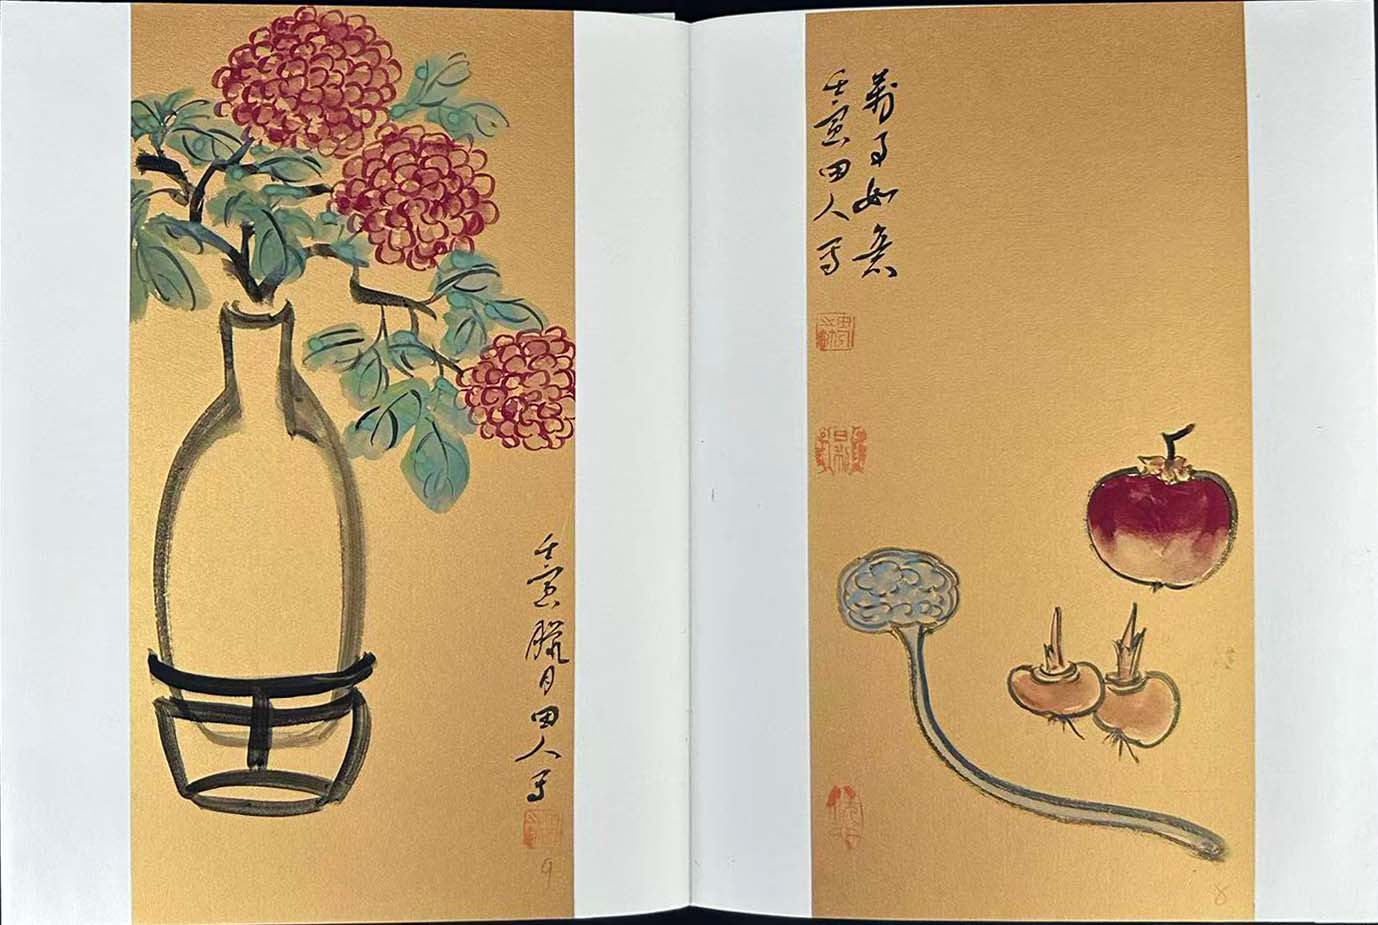 萬事如意
壬寅田人写
壬寅臘月田人写
8
9